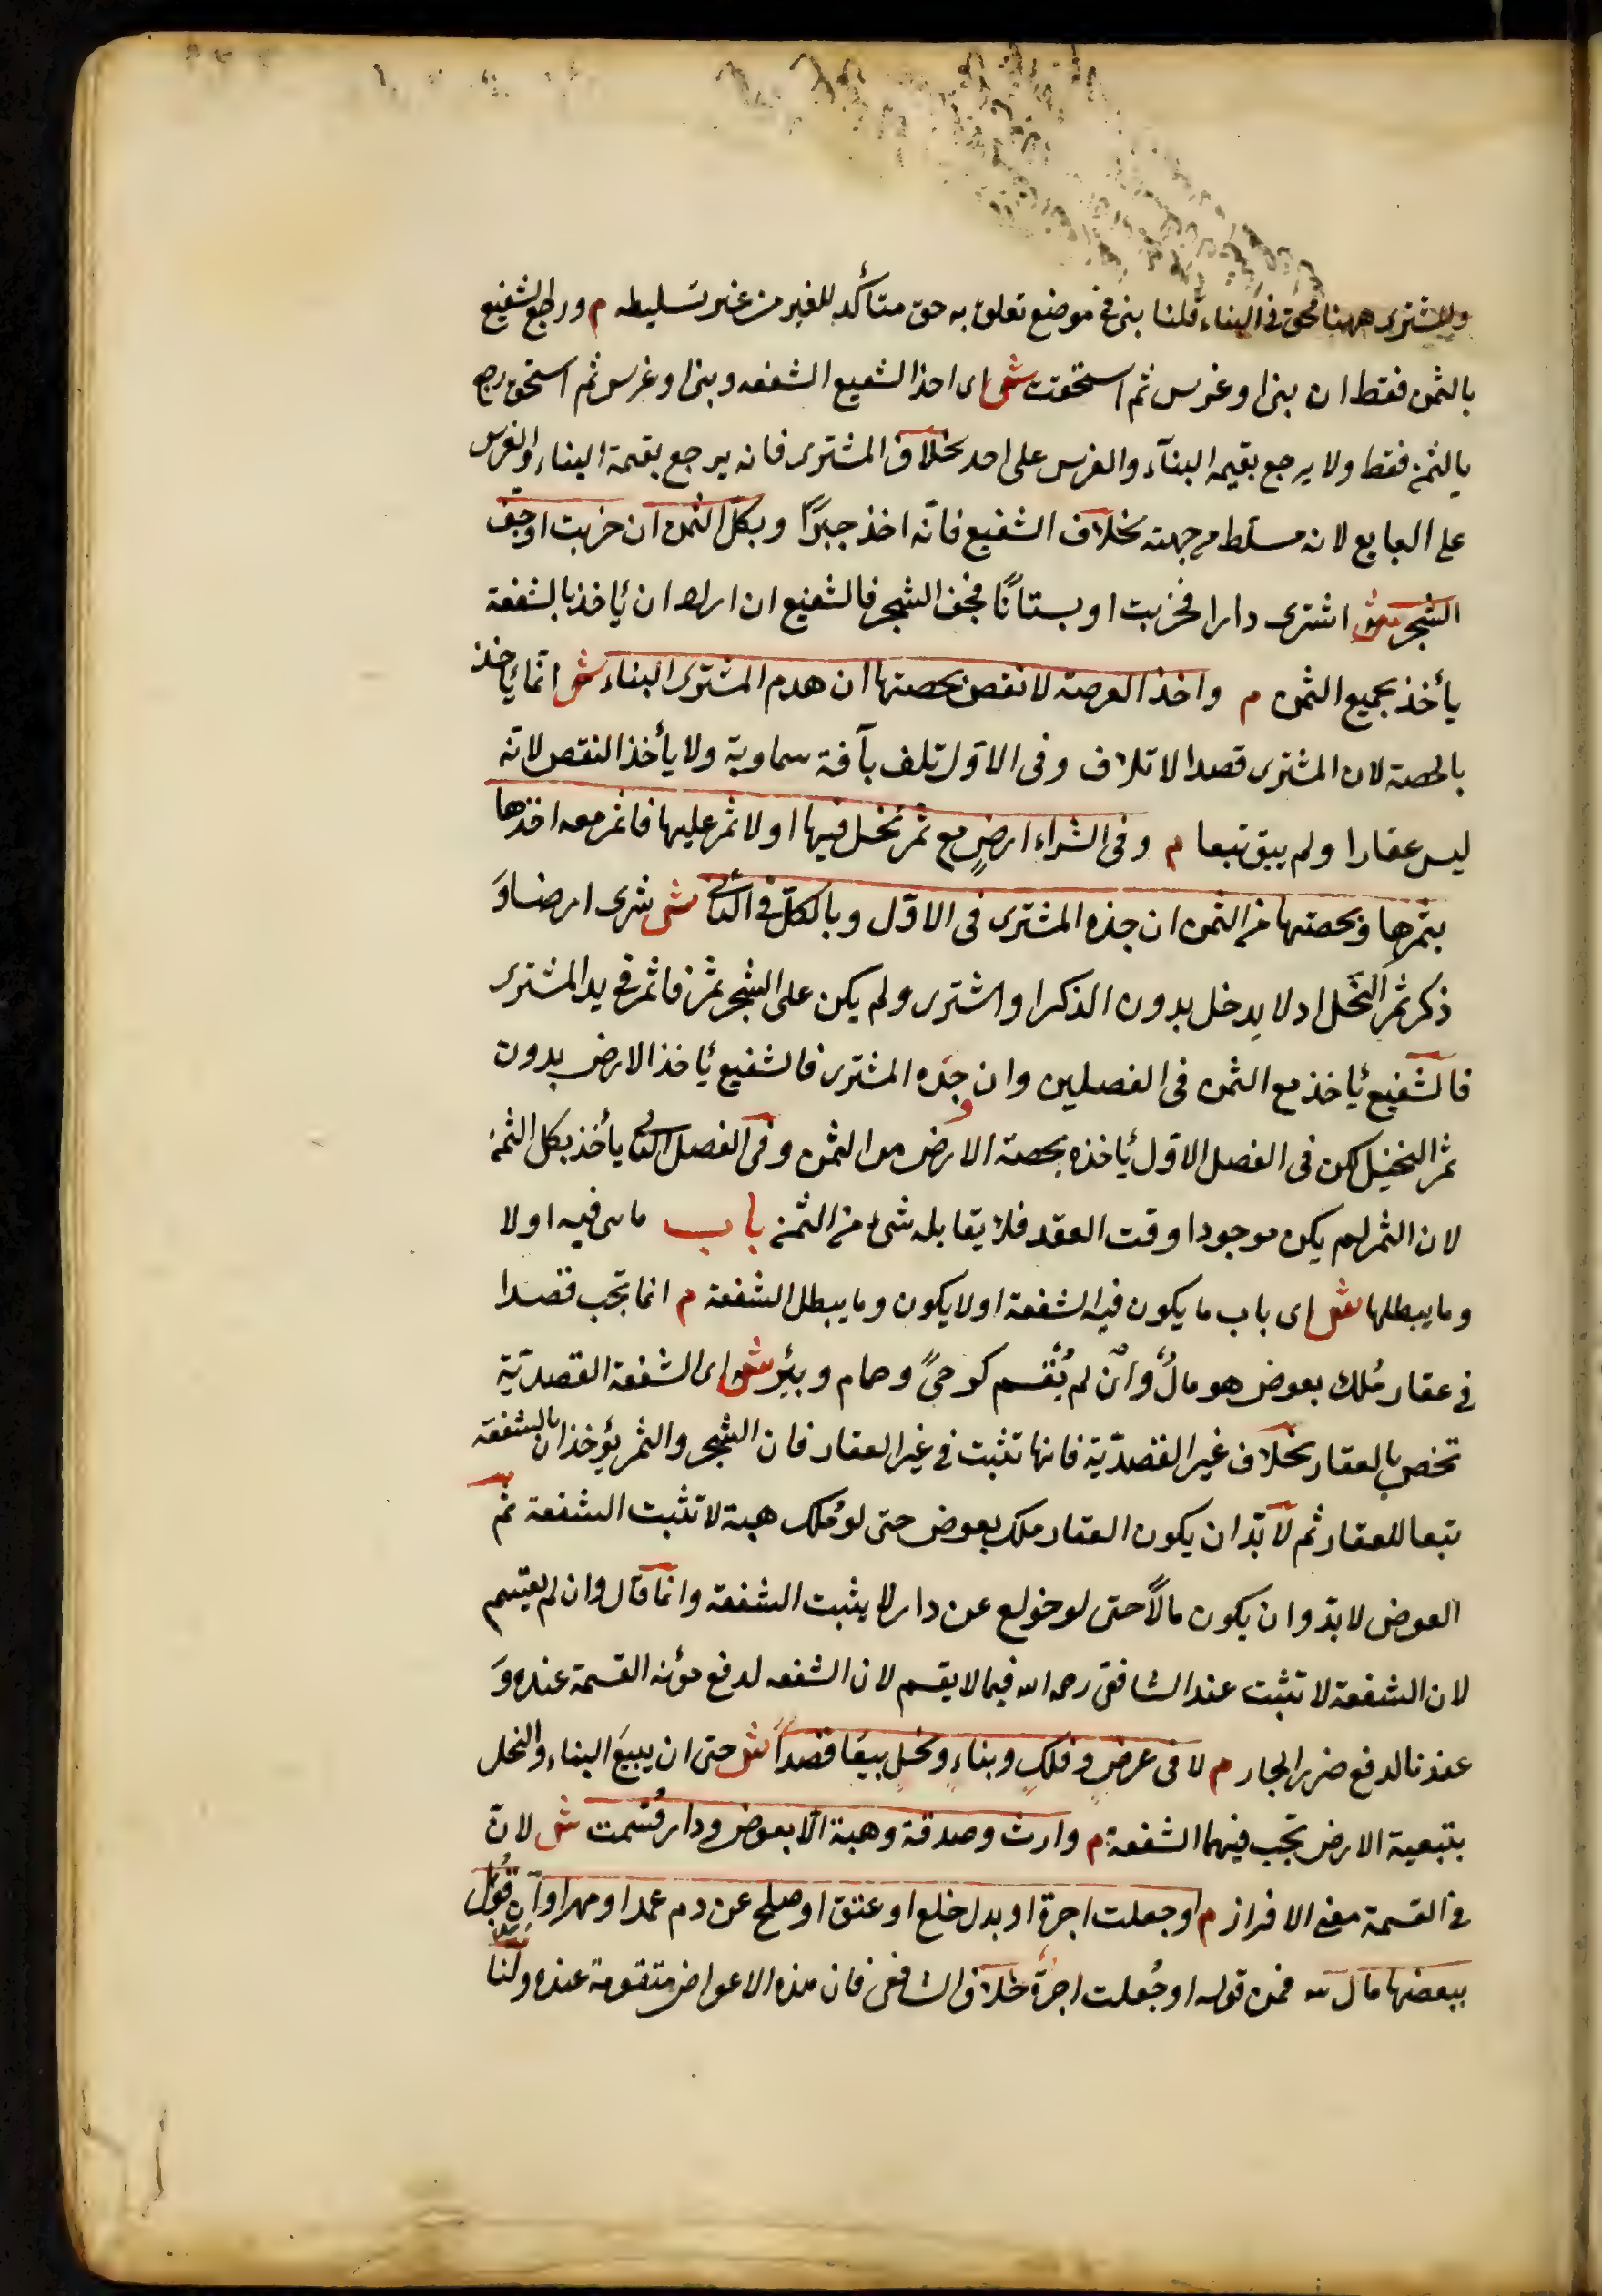 وللمشترى ههنا محق فى البناء قلنا بنى فى موضع تعلق به حق متأكد للغير من غير تسليطه م ورجع الشفيع
بالثمن فقط ان بنى او غرس ثم استحقت ش اى اخذ الشفيع الشفعه وبنى او غرس ثم استحق رجع
بالثمن فقط ولا يرجع بقيمه البنآء والغرس على احد بخلاف المشترى فانه يرجع بقيمة البناء والغرس
على البايع لانه مسلّط من جهته بخلاف الشفيع فانّه اخذ جبرًا وبكل الثمن ان خربت او جف
الشجر ش اشترى دارا فخربت او بستانًا فجف الشجر فالشفيع ان اراد ان يأخذ بالشفعة
يأخذ بجميع الثمن م واخذ العرصة لا نقص بحصتها ان هدم المشترى البناء ش انّما يأخذ
بالحصة لان المشترى قصد الاتلاف وفى الاوّل تلف بآفة سماوية ولا يأخذ النقص لانّه
ليس عقارا ولم يبق تبعا م وفى الشراء ارضٍ مع ثمر نخل فيها اولا ثمر عليها فاثمر معه اخذها
بثمرها وبحصتها من الثمن ان جذه المشترى فى الاوّل وبالكلّ فى الثانى ش شرى ارضا وَ
ذكر ثمر النخل اد لا يدخل بدون الذكر او اشترى ولم يكن على الشجر ثمر فاثمر فى يد المشترى
فالشفيع يأخذ مع الثمن فى الفصلين وان جذه المشترى فالشفيع يأخذ الارض بدون
ثمر النخيل لكن فى الفصل الاوّل يأخذه بحصة الارض من الثمن وفى الفصل الثانى يأخذ بكل الثمن
لان الثمر لم يكن موجودا وقت العقد فلا يقابله شئ من الثمن باب ما هى فيه اولا
وما يبطلها ش اى باب ما يكون فيه الشفعة اولا يكون وما يبطل الشفعة م انما تجب قصدا
فى عقار مُلك بعوض هو مالٌ وانْ لم يُقسم كرحىً وحمام وبئر ش اى الشفعة القصديّة
تخص بالعقار بخلاف غير القصديّة فانها تثبت فى غير العقار فان الشجر والثمر يؤخذان بالشفعة
تبعا للعقار ثم لا بدّ ان يكون العقار ملك بعوض حتى لو مُلك هبة لا تثبت الشفعة ثم
العوض لا بدّ وان يكون مالًا حتى لو خولع عن دار لا يثبت الشفعة وانما قال وان لم يقسم
لان الشفعة لا تثبت عند الشافعى رحمه الله فيما لا يقسم لان الشفعه لدفع مؤنه القسمة عنده وَ
عندنا لدفع ضرر الجار م لا فى عرض وفلكٍ وبناءٍ ونخلٍ بيعَا قصدًا ش حتى ان بيعَ البناء والنخل
بتبعية الارض تجب فيهما الشفعة م وارث وصدقة وهبة الّا بعوض ودار قُسمت ش لانّ
فى القسمة معنى الافراز م او جعلت اجرة او بدل خلع او عتق او صلح عن دم عمدا ومهر او ان قوبل
ببعضها مال ش فمن قوله او جُعلت اجرة خلاف الشافعى فان هذه الاعواض متقومة عنده ولنا